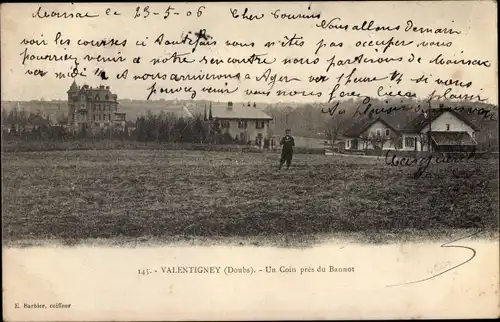 Moissac 23-5-06 Cher Cousins Nous allons demain
voir les courses si toutefois vous n'êtes pas occuper vous
pourriez venir a notre rencontre nous partirons de Moissac
vers midi et nous arriverons a Agen vers 1 heure 1/4 si vous
pouvez venir vous nous ferez bien plaisir
145. - VALENTIGNEY (Doubs). - Un Coin près du Bannot
E. Barbier, coiffeur